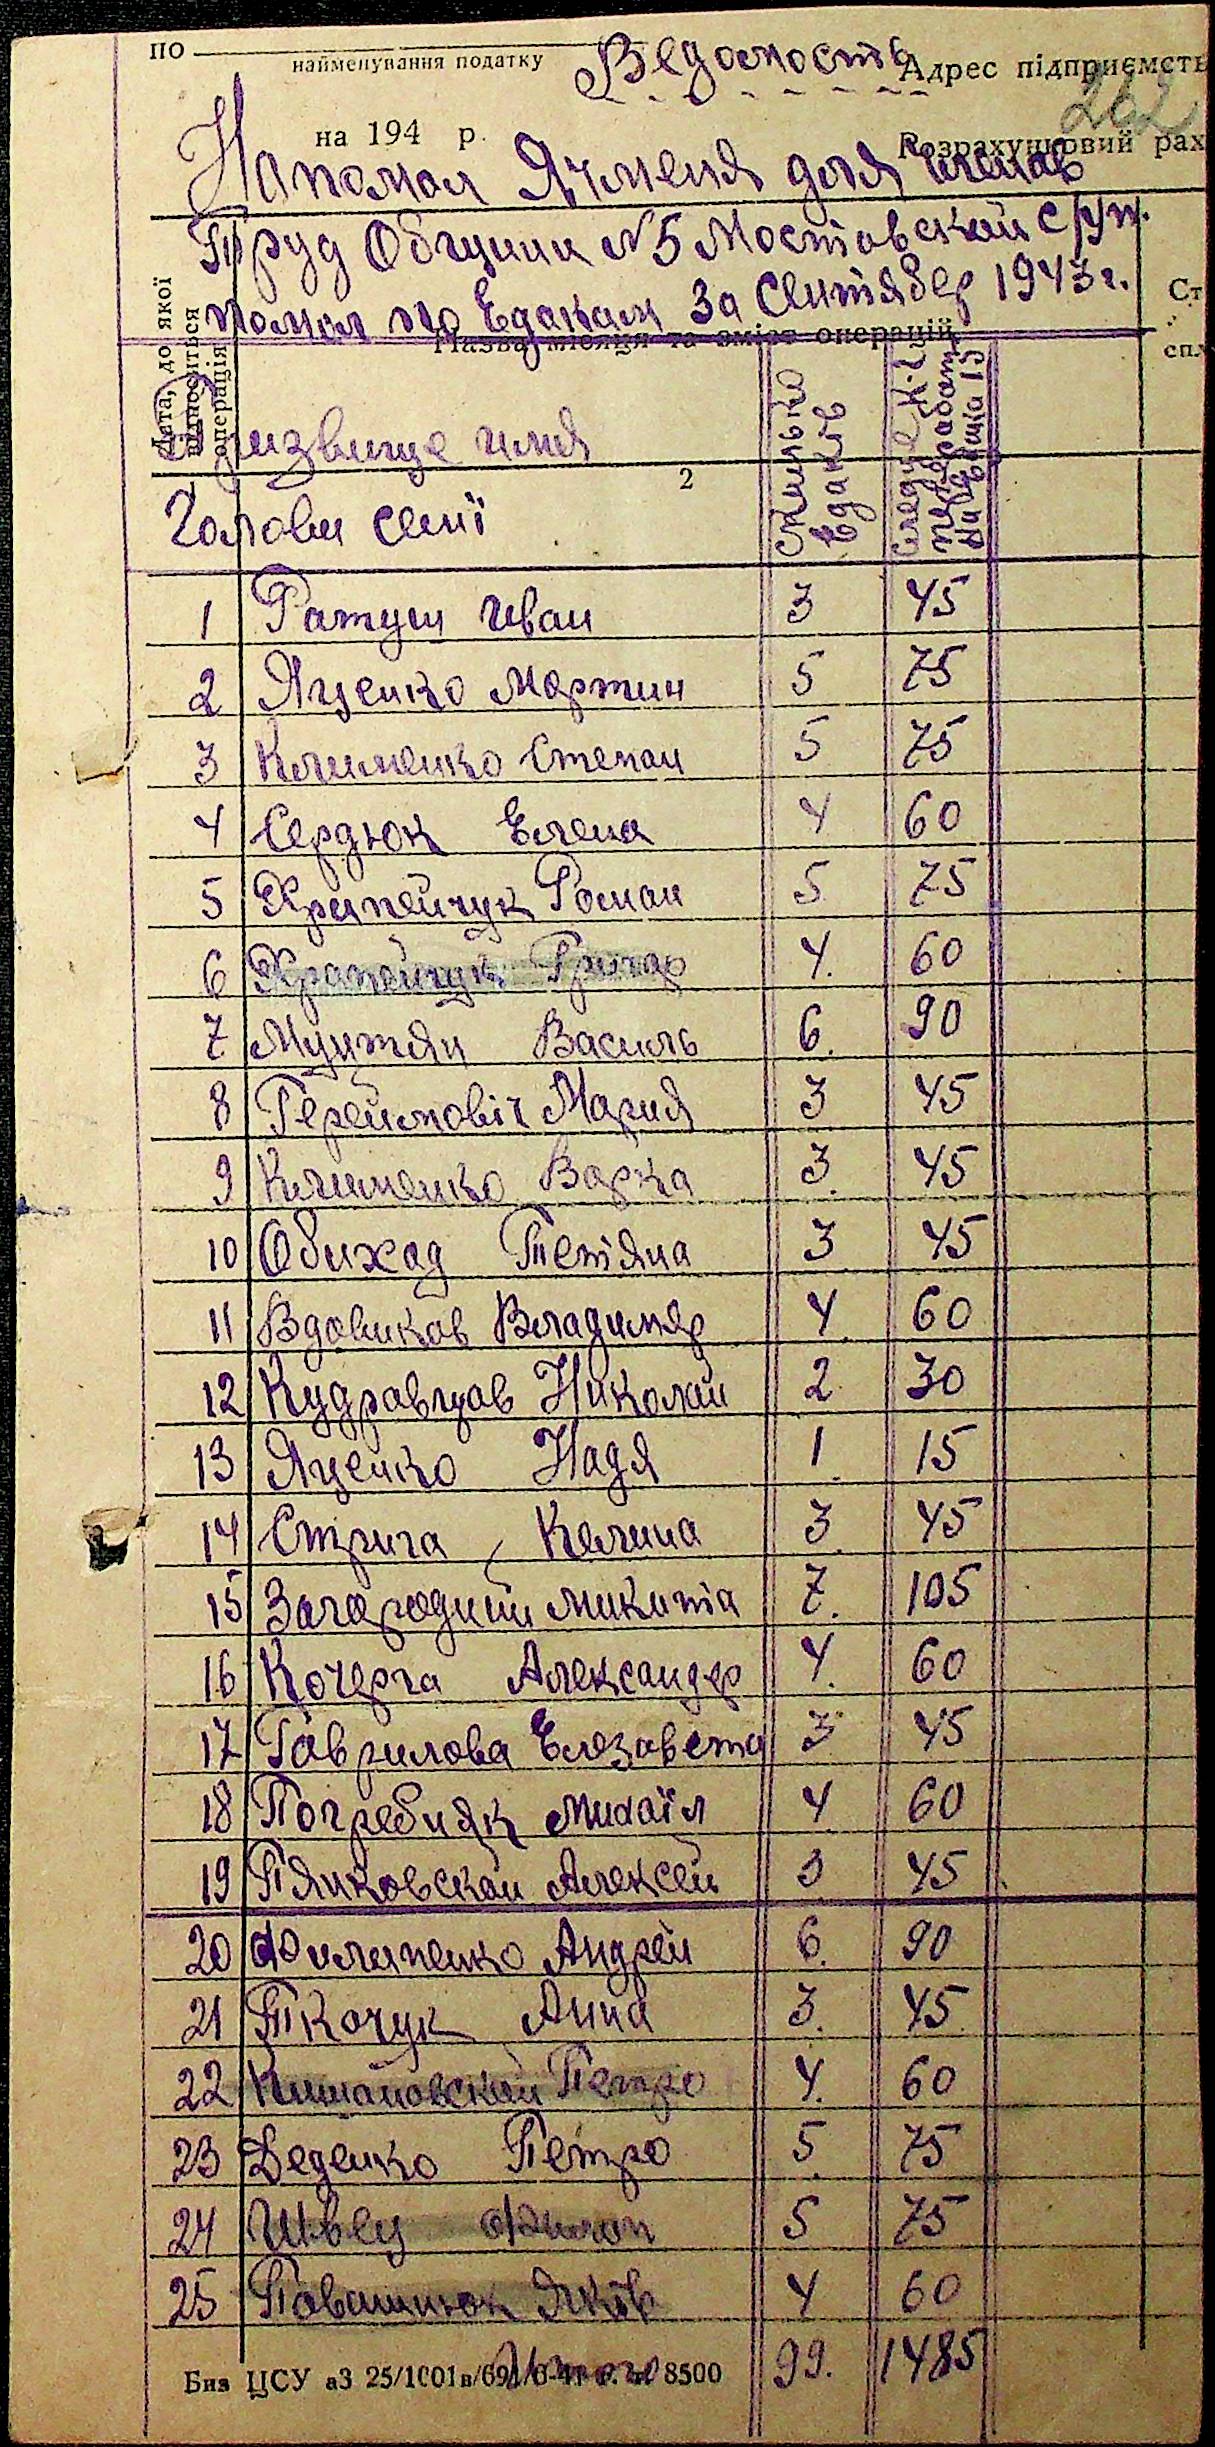 по
найменування податку
Ведомость
Адрес підприємств
262
на 194 р.
Розрахунковий рах
Напомол Ячменя для членов
Труд Общини №5 Мостовской с/уп.
помол по Едокам За Сентябер 1943 г.
Ст
спл
Дата, до якої відноситься операція
Назва місяця та зміст операцій
Призвище имя
2
Голови семї
Скилько Едоків
Следуе К-г
на Едока 15
1 Ратуш Иван 3 45
2 Яценко Мартин 5 75
3 Клименко Степан 5 75
4 Сердюк Елена 4 60
5 Храпейчук Роман 5 75
6 Храпейчук Григор 4. 60
7 Мунтян Василь 6. 90
8 Гереймовіч Мария 3 45
9 Клименко Варка 3. 45
10 Обиход Тетяна 3 45
11 Вдовиков Владимер 4. 60
12 Кудравцов Николай 2. 30
13 Яценко Надя 1. 15
14 Стрига Келина 3. 45
15 Загородний Микита 7. 105
16 Кочерга Александер 4. 60
17 Гаврилова Елезавета 3 45
18 Погребняк Михаїл 4 60
19 Пянковской Алексей 3 45
20 Филипенко Андрей 6. 90
21 Ткачук Анна 3. 45
22 Петро 4. 60
23 Деденко Петро 5. 75
24 Швец Филип 5 75
25 Яків 4 60
Итого 99. 1485
Биз ЦСУ аЗ 25/1001в/69 8500